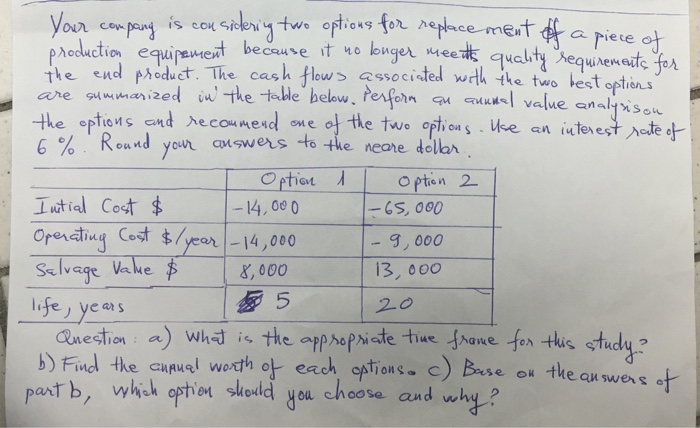 Your company is considering two options for replacement of a piece of
production equipement because it no longer meets quality requirements for
the end product. The cash flows associated with the two best options
are summarized in the table below. Perform an annual value analysis on
the options and recommend one of the two options. Use an interest rate of
6 %. Round your answers to the neare dollar.
Option 1 Option 2
Initial Cost $ -14,000 -65,000
Operating Cost $/year -14,000 -9,000
Salvage Value $ 8,000 13,000
life, years 5 20
Question: a) What is the appropriate time frame for this study?
b) Find the annual worth of each options. c) Base on the answers of
part b, which option should you choose and why?